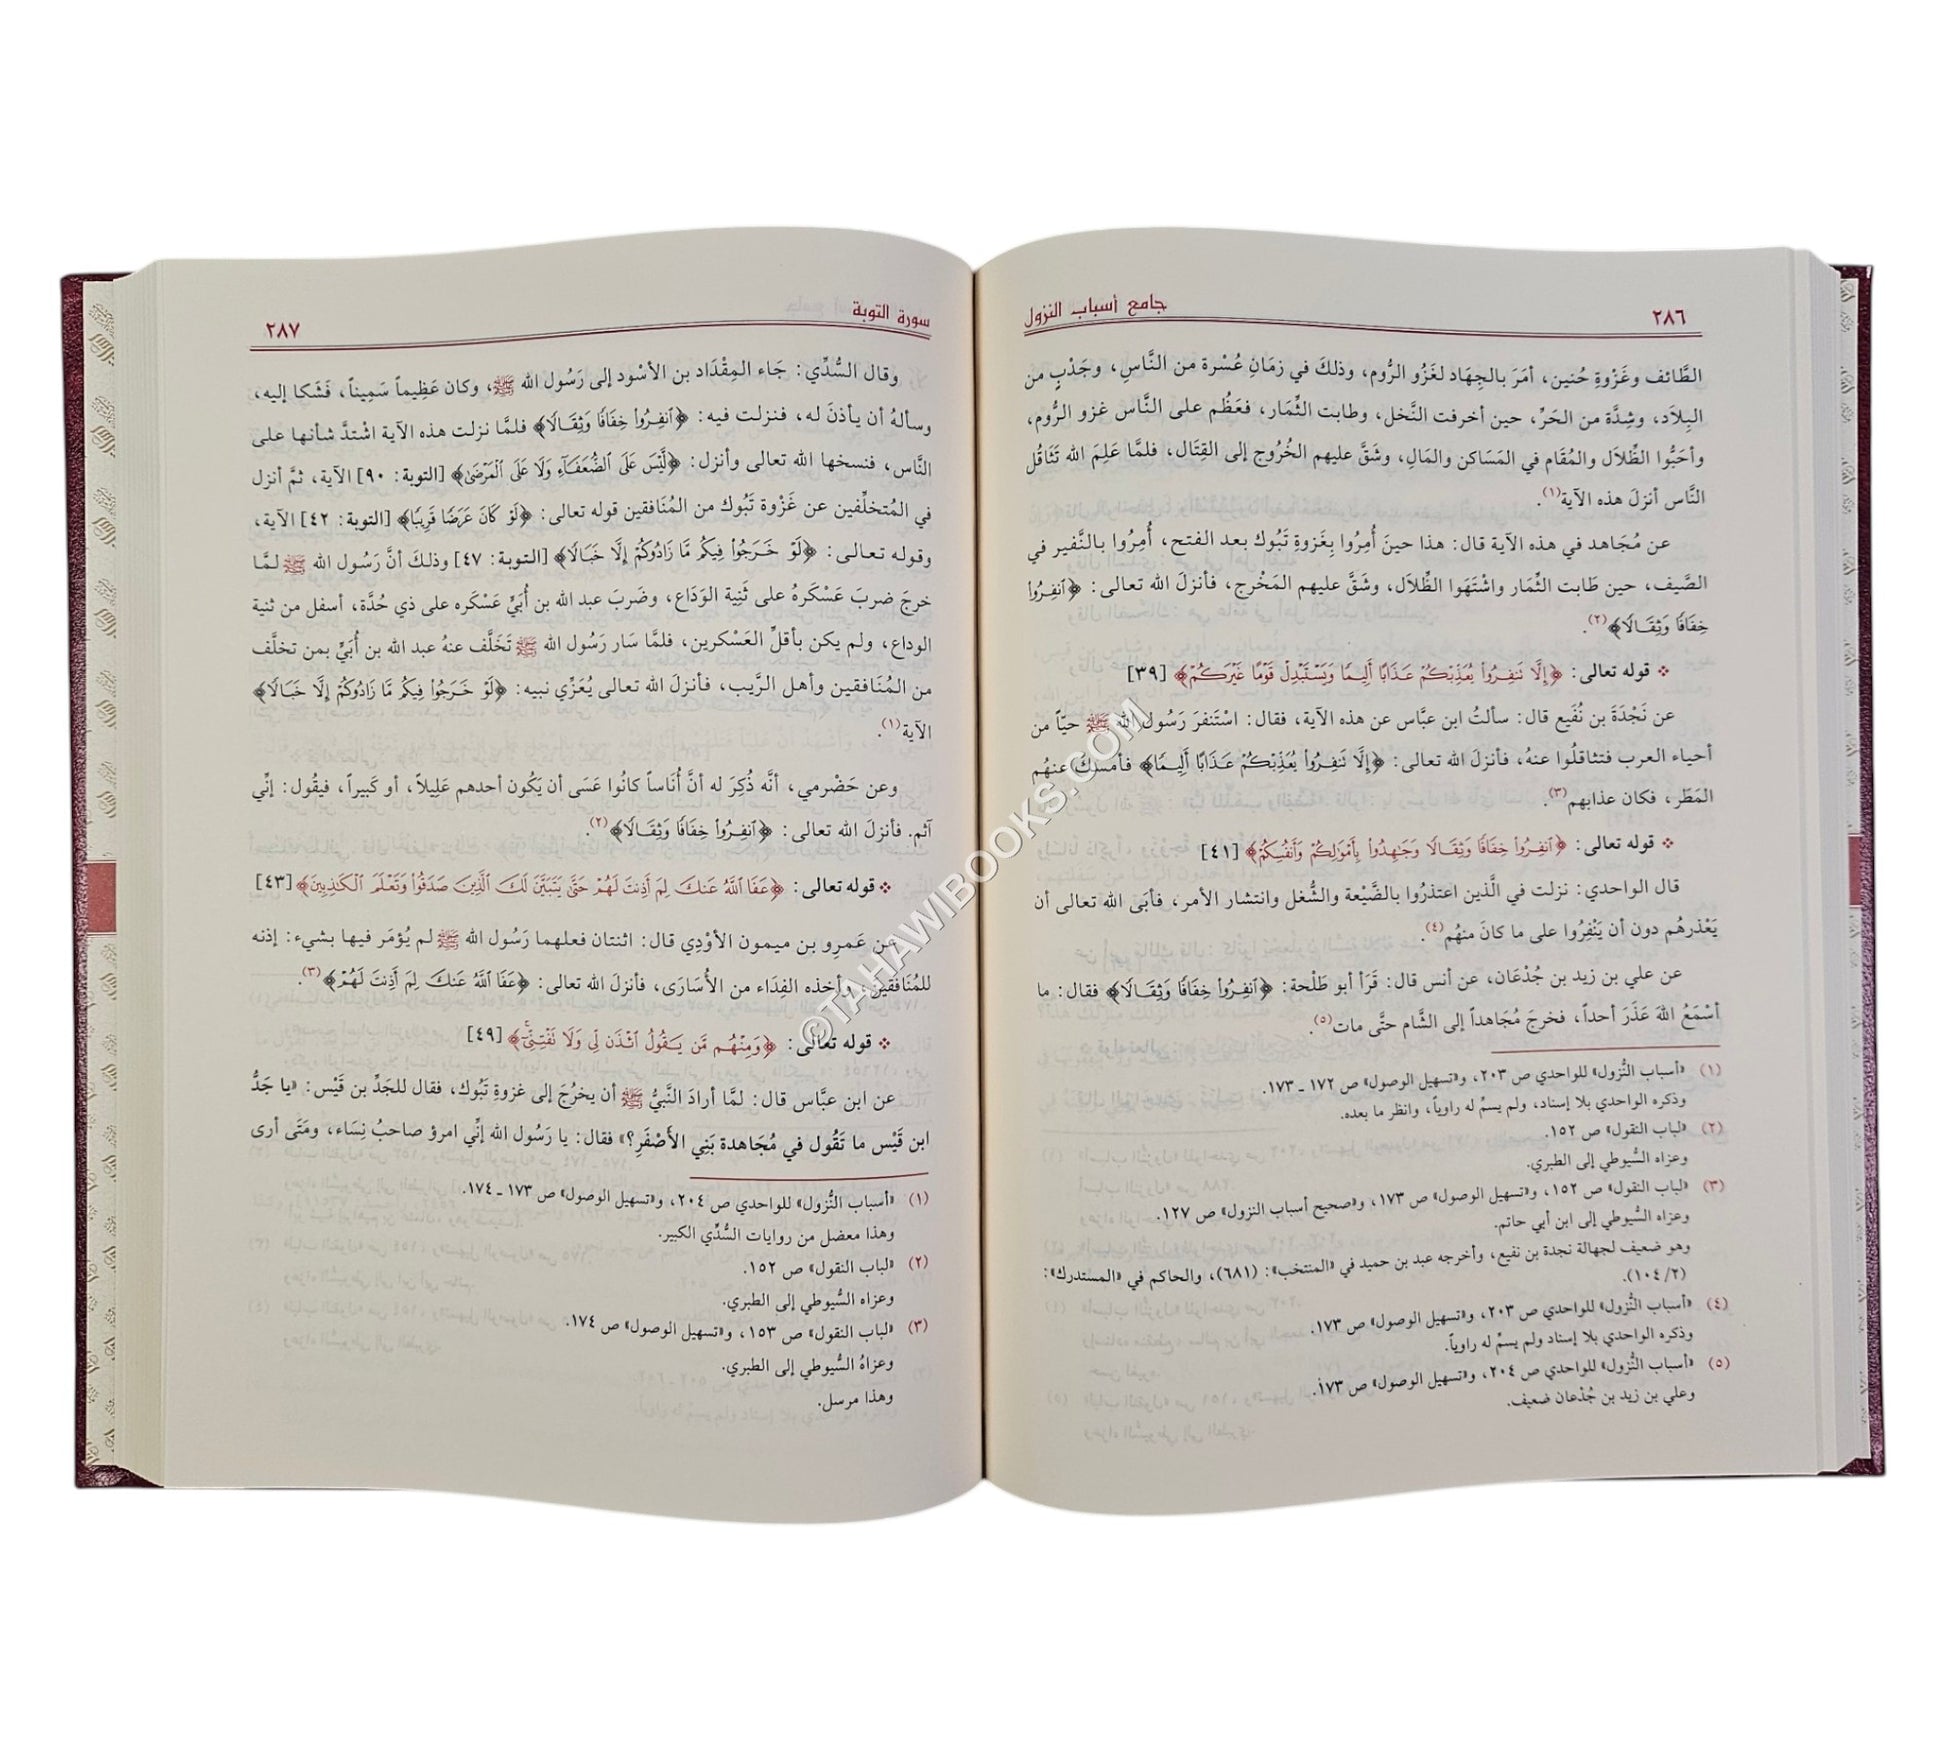 ٢٨٦
جامع أسباب النزول
الطَّائف وغَزْوةِ حُنين، أمَرَ بالجِهَاد لغَزْو الرُّوم، وذلكَ في زمَانِ عُسْرة من النَّاسِ، وجَدْبٍ من
البِلاَد، وشِدَّة من الحَرِّ، حين أخرفت النَّخل، وطابت الثِّمَار، فعَظُم على النَّاس غزو الرُّوم،
وأحَبُّوا الظِّلاَل والمُقَام في المَسَاكن والمَالِ، وشَقَّ عليهم الخُرُوج إلى القِتَال، فلمَّا عَلِمَ الله تَثَاقُل
النَّاس أنزلَ هذه الآية(١).
عن مُجَاهد في هذه الآية قال: هذا حينَ أُمِرُوا بِغَزوةِ تَبُوك بعد الفتح، أُمِرُوا بالنَّفير في
الصَّيف، حين طَابت الثِّمَار واشْتَهَوا الظِّلاَل، وشَقَّ عليهم المَخْرج، فأنزلَ الله تعالى: ﴿ٱنفِرُوا۟
خِفَافًا وَثِقَالًا﴾(٢).
❖ قوله تعالى: ﴿إِلَّا تَنفِرُوا۟ يُعَذِّبْكُمْ عَذَابًا أَلِيمًا وَيَسْتَبْدِلْ قَوْمًا غَيْرَكُمْ﴾ [٣٩]
عن نَجْدَةَ بن نُفَيع قال: سألتُ ابن عبَّاس عن هذه الآية، فقال: اسْتَنفرَ رَسُول الله ﷺ حيّاً من
أحياء العرب فتثاقلُوا عنهُ، فأنزلَ الله تعالى: ﴿إِلَّا تَنفِرُوا۟ يُعَذِّبْكُمْ عَذَابًا أَلِيمًا﴾ فأمسكَ عنهُم
المَطَر، فكان عذابهم(٣).
❖ قوله تعالى: ﴿ٱنفِرُوا۟ خِفَافًا وَثِقَالًا وَجَٰهِدُوا۟ بِأَمْوَٰلِكُمْ وَأَنفُسِكُمْ﴾ [٤١]
قال الواحدي: نزلت في الَّذين اعتذرُوا بالضَّيْعة والشُّغل وانتشار الأمر، فأبَى الله تعالى أن
يَعْذرهُم دون أن يَنْفِرُوا على ما كانَ منهُم(٤).
عن علي بن زيد بن جُدْعَان، عن أنس قال: قَرَأ أبو طَلْحة: ﴿ٱنفِرُوا۟ خِفَافًا وَثِقَالًا﴾ فقال: ما
أسْمَعُ اللهَ عَذَر أحداً، فخرجَ مُجَاهداً إلى الشَّام حتَّى مات(٥).
(١) «أسباب النُّزول» للواحدي ص ٢٠٣، و«تسهيل الوصول» ص ١٧٢ ـ ١٧٣.
وذكره الواحدي بلا إسناد، ولم يسمِّ له راوياً، وانظر ما بعده.
(٢) «لباب النقول» ص ١٥٢.
وعزاه السُّيوطي إلى الطبري.
(٣) «لباب النقول» ص ١٥٢، و«تسهيل الوصول» ص ١٧٣، و«صحيح أسباب النزول» ص ١٢٧.
وعزاه السُّيوطي إلى ابن أبي حاتم.
وهو ضعيف لجهالة نجدة بن نفيع، وأخرجه عبد بن حميد في «المنتخب»: (٦٨١)، والحاكم في «المستدرك»:
(٢/ ١٠٤).
(٤) «أسباب النُّزول» للواحدي ص ٢٠٣، و«تسهيل الوصول» ص ١٧٣.
وذكره الواحدي بلا إسناد ولم يسمِّ له راوياً.
(٥) «أسباب النُّزول» للواحدي ص ٢٠٤، و«تسهيل الوصول» ص ١٧٣.
وعلي بن زيد بن جُدْعان ضعيف.
سورة التوبة
٢٨٧
وقال السُّدِّي: جَاء المِقْدَاد بن الأسْود إلى رَسُول الله ﷺ، وكان عَظِيماً سَمِيناً، فَشَكا إليه،
وسألهُ أن يأذنَ له، فنزلت فيه: ﴿ٱنفِرُوا۟ خِفَافًا وَثِقَالًا﴾ فلمَّا نزلت هذه الآية اشْتدَّ شأنها على
النَّاس، فنسخها الله تعالى وأنزل: ﴿لَّيْسَ عَلَى ٱلضُّعَفَآءِ وَلَا عَلَى ٱلْمَرْضَىٰ﴾ [التوبة: ٩٠] الآية، ثمَّ أنزل
في المُتخلِّفين عن غَزْوة تَبُوك من المُنَافقين قوله تعالى: ﴿لَوْ كَانَ عَرَضًا قَرِيبًا﴾ [التوبة: ٤٢] الآية،
وقوله تعالى: ﴿لَوْ خَرَجُوا۟ فِيكُم مَّا زَادُوكُمْ إِلَّا خَبَالًا﴾ [التوبة: ٤٧] وذلكَ أنَّ رَسُول الله ﷺ لمَّا
خرجَ ضربَ عَسْكَرهُ على ثَنِية الوَدَاع، وضَربَ عبد الله بن أُبَيٍّ عَسْكَره على ذي حُدَّة، أسفل من ثنية
الوداع، ولم يكن بأقلِّ العَسْكرين، فلمَّا سَار رَسُول الله ﷺ تَخَلَّف عنهُ عبد الله بن أُبَيٍّ بمن تخلَّف
من المُنَافقين وأهل الرَّيب، فأنزلَ الله تعالى يُعَزِّي نبيه: ﴿لَوْ خَرَجُوا۟ فِيكُم مَّا زَادُوكُمْ إِلَّا خَبَالًا﴾
الآية(١).
وعن حَضْرمي، أنَّه ذُكِرَ له أنَّ أُنَاساً كانُوا عَسَى أن يَكُون أحدهم عَلِيلاً، أو كَبيراً، فيقُول: إنِّي
آثم. فأنزلَ الله تعالى: ﴿ٱنفِرُوا۟ خِفَافًا وَثِقَالًا﴾(٢).
❖ قوله تعالى: ﴿عَفَا ٱللَّهُ عَنكَ لِمَ أَذِنتَ لَهُمْ حَتَّىٰ يَتَبَيَّنَ لَكَ ٱلَّذِينَ صَدَقُوا۟ وَتَعْلَمَ ٱلْكَٰذِبِينَ﴾ [٤٣]
عن عَمرو بن ميمون الأوْدِي قال: اثنتان فعلهما رَسُول الله ﷺ لم يُؤمَر فيها بشيء: إذنه
للمُنَافقين، وأخذه الفِدَاء من الأُسَارَى، فأنزلَ الله تعالى: ﴿عَفَا ٱللَّهُ عَنكَ لِمَ أَذِنتَ لَهُمْ﴾(٣).
❖ قوله تعالى: ﴿وَمِنْهُم مَّن يَقُولُ ٱئْذَن لِّي وَلَا تَفْتِنِّيٓ﴾ [٤٩]
عن ابن عبَّاس قال: لمَّا أرادَ النَّبيُّ ﷺ أن يخرُجَ إلى غزوةِ تَبُوك، فقال للجَدِّ بن قَيْس: «يا جَدُّ
ابن قَيْس ما تَقُول في مُجَاهدة بَنِي الأَصْفَرِ؟» فقال: يا رَسُول الله إنِّي امرؤ صاحبُ نِسَاء، ومَتَى أرى
(١) «أسباب النُّزول» للواحدي ص ٢٠٤، و«تسهيل الوصول» ص ١٧٣ ـ ١٧٤.
وهذا معضل من روايات السُّدِّي الكبير.
(٢) «لباب النقول» ص ١٥٢.
وعزاه السُّيوطي إلى الطبري.
(٣) «لباب النقول» ص ١٥٣، و«تسهيل الوصول» ص ١٧٤.
وعزاهُ السُّيوطي إلى الطبري.
وهذا مرسل.
©TAHAWIBOOKS.COM